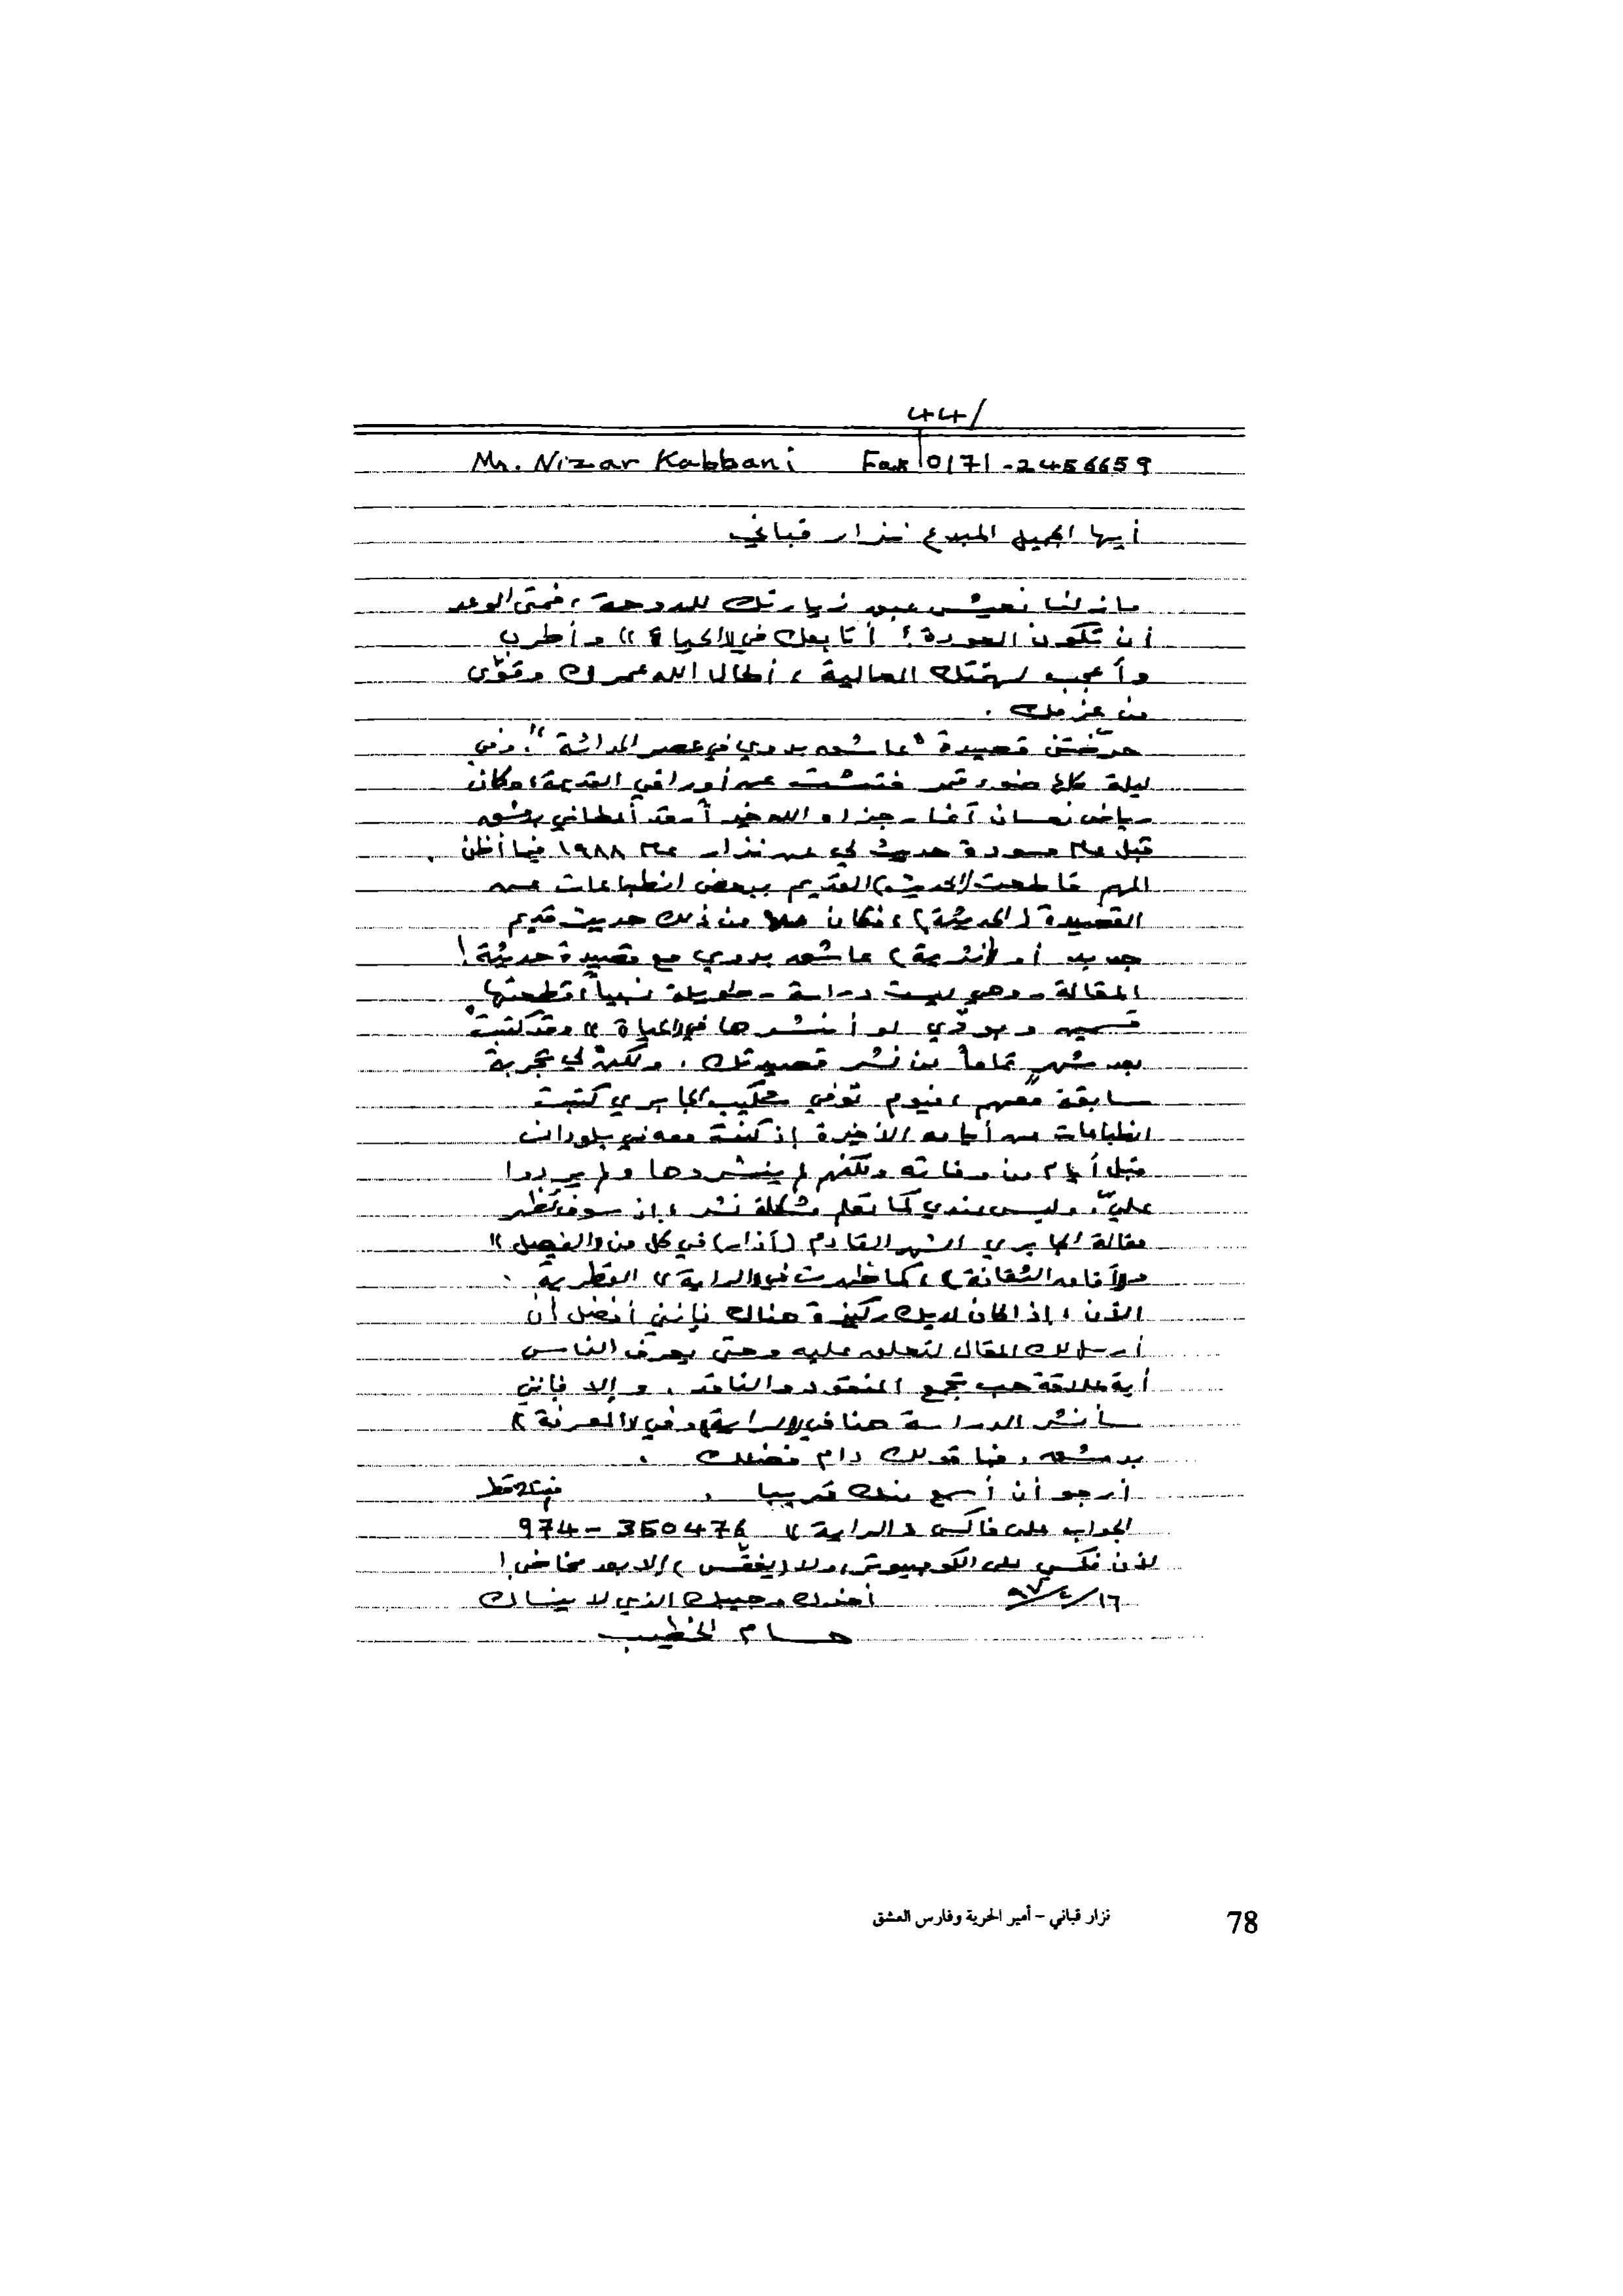 44/
Mr. Nizar Kabbani Fax 0171-2456659
أيها الجميل المبدع نزار قباني
مازلنا نعيش عبير زيارتك للدوحة، فمتى الوعد
أن تكون العودة؟ أتابعك في «الحياة» وأطرب
وأعجب لهمتك العالية، أطال الله عمرك وقوّى
من عزمك.
حرّضتني قصيدة "عاشق بدوي في عصر الحداثة". وفي
ليلة ضوء قمر فتشت عن أوراقي القديمة، وكان
رياض نعسان آغا - جزاه الله خيراً - قد أعطاني بدمشق
قبل عام مسودة حديث لي عن نزار عام ١٩٨٨ فيما أظن.
المهم قاطعت (الحديث) القديم ببعض انطباعات عن
القصيدة (الحديثة)، فكان من ذلك حديث قديم
جديد أو عاشق بدوي مع قصيدة حديثة!
المقالة - وهي ليست دراسة - طويلة نسبياً، قطعتها
قسمين وبودّي لو أنشرها في «الحياة» وقد كتبت
بعد شهر تماماً من نشر قصيدتك. ولكن لي تجربة
سابقة معهم، فيوم توفي شكيب الجابري كتبت
انطباعات عن أيامه الأخيرة إذ كنت معه في بلودان
قبل أيام من وفاته ولكنهم لم ينشروها ولم يردوا
عليّ. وليس عندي كما تعلم مشكلة نشر، إذ سوف تظهر
مقالة الجابري الشهر القادم (أذار) في كل من «الفيصل»
و«آفاق الثقافة»، كما ظهرت في «الراية» القطرية.
الآن، إذا كان لديك ركيزة هناك فإنني أفضل أن
أرسل لك المقال لتطلع عليه وحتى يعرف الناس
أية علاقة حب تجمع المنقود والناقد. وإلا فإنني
سأنشر الدراسة هنا في «الراية» وفي «المعرفة»
بدمشق. فما قولك دام فضلك.
أرجو أن أسمع منك قريبا.
الجواب على فاكس «الراية» 974-350476
لأن فكسي على الكومبيوتر، ولا (يفقّس) إلا بعد مخاض!
١٦/٤/٩٧ أخوك وحبيبك الذي لا ينساك
حسام الخطيب
نزار قباني - أمير الحرية وفارس العشق 78